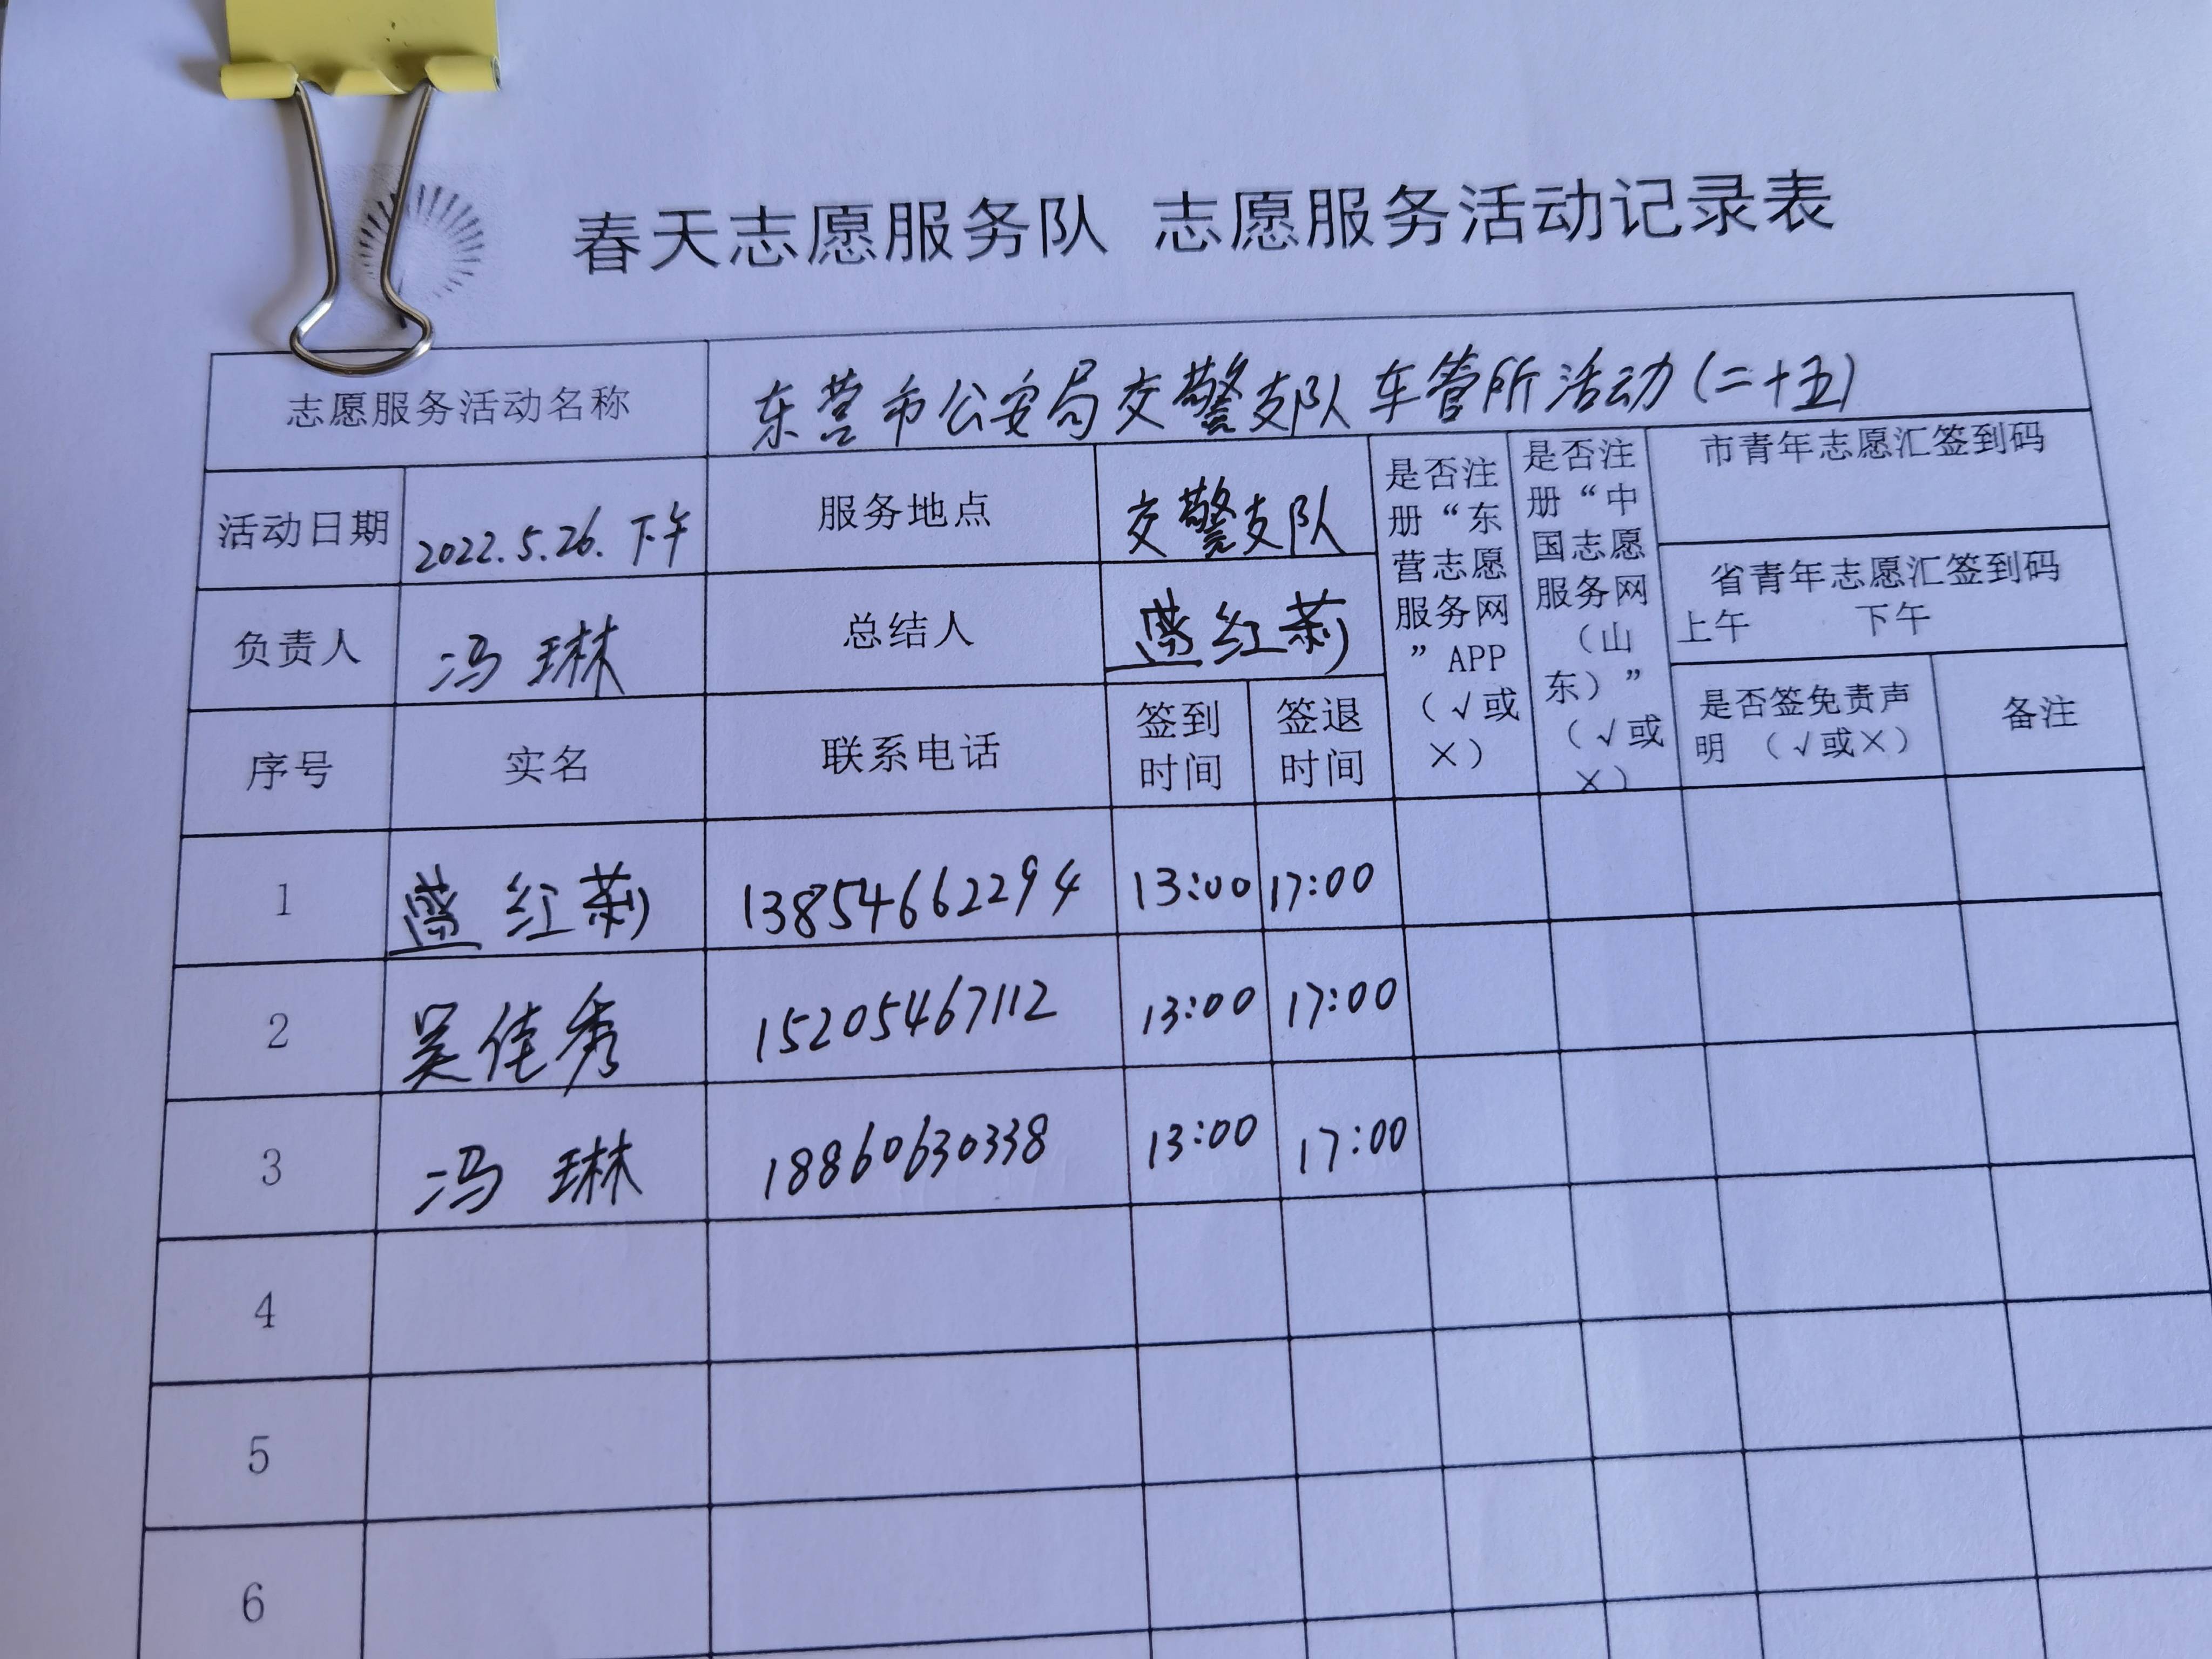 春天志愿服务队 志愿服务活动记录表
志愿服务活动名称 东营市公安局交警支队车管所活动(二十五)
活动日期 2022.5.26.下午 服务地点 交警支队
是否注册“东营志愿服务网”APP（√或×）
是否注册“中国志愿服务网（山东）”（√或×）
市青年志愿汇签到码
省青年志愿汇签到码
上午 下午
负责人 冯琳 总结人 红莉
序号 实名 联系电话 签到时间 签退时间 是否签免责声明（√或×） 备注
1 红莉 13854662294 13:00 17:00
2 吴佳秀 15205467112 13:00 17:00
3 冯琳 18860630338 13:00 17:00
4
5
6